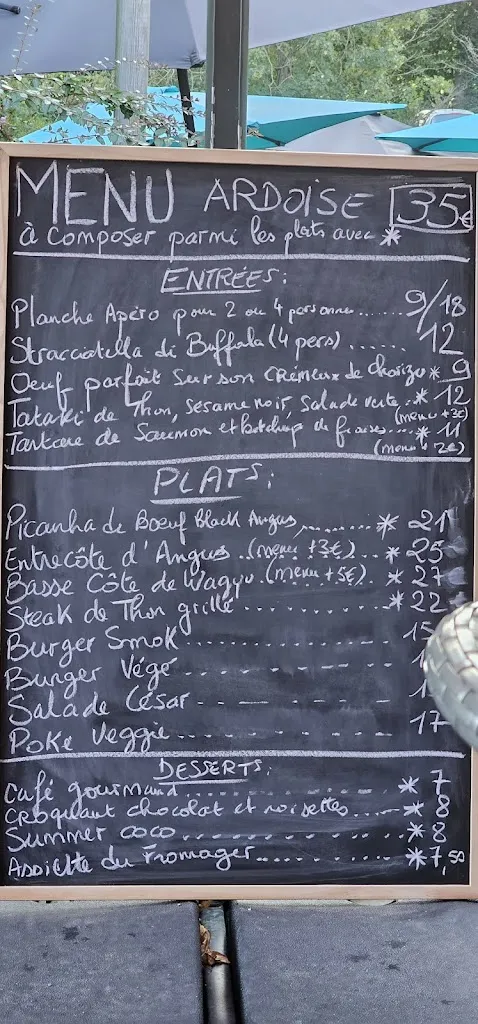 MENU ARDOISE 35€
à composer parmi les plats avec *
ENTRÉES:
Planche Apéro pour 2 ou 4 personnes....... 9/18
Stracciatella di Buffala (4 pers)...... 12
Oeuf parfait sur son crémeux de chorizo * 9
Tataki de Thon, sésame noir, Salade verte.* 12
(menu +3€)
Tartare de Saumon et ketchup de fraises...* 11
(menu + 2€)
PLATS:
Picanha de Boeuf Black Angus.......* 21
Entrecôte d'Angus.(menu +3€)..* 25
Basse Côte de Wagyu.(menu +5€).* 27
Steak de Thon grillé..........* 22
Burger Smok.............. 15
Burger Végé.............. 1
Salade César............ 1
Poke Veggie............. 17
DESSERTS:
Café gourmand...........* 7
Croquant chocolat et noisettes....* 8
Summer coco............* 8
Assiette du Fromager.........*7,50